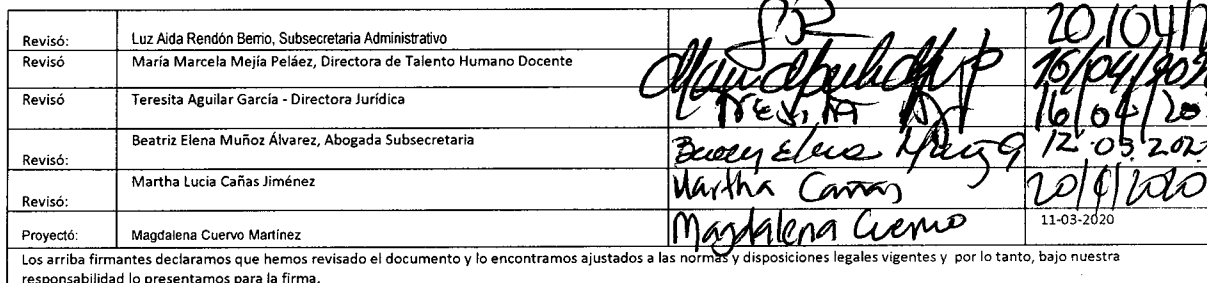 Revisó: Luz Aida Rendón Berrio, Subsecretaria Administrativo 20/04/
Revisó María Marcela Mejía Peláez, Directora de Talento Humano Docente 16/04/202
Revisó Teresita Aguilar García - Directora Jurídica TERESITA 16/04/20
Revisó: Beatriz Elena Muñoz Álvarez, Abogada Subsecretaria 12.03.202
Revisó: Martha Lucia Cañas Jiménez Martha Cañas 20/4/2020
Proyectó: Magdalena Cuervo Martínez Magdalena Cuervo 11-03-2020
Los arriba firmantes declaramos que hemos revisado el documento y lo encontramos ajustados a las normas y disposiciones legales vigentes y por lo tanto, bajo nuestra
responsabilidad lo presentamos para la firma.